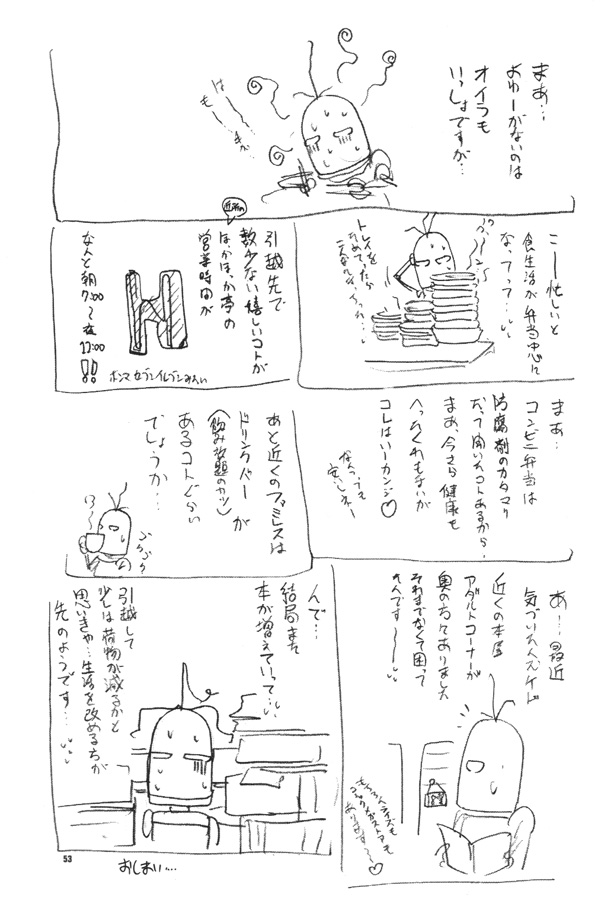 まあ…
よゆーがないのは
オイラも
いっしょですが…
は
も
こー忙しいと
食生活が弁当中心に
なってって…
トレイを
ためてったら
近所の
引越先で
数少ない嬉しいコトが
ほかほか亭の
営業時間が
なんと朝
7:00
〜夜
H
ホンマセブンイレブンみたい
まあ…
コンビニ弁当は
防腐剤のカタマリ
だって聞いたコトあるから
まあ、今さら健康も
へったくれもないが
コレはいーカンジ♡
なんつっても
安いしねー
あと近くのファミレスは
ドリンクバーが
(飲み放題のヤツ)
あるコトぐらい
でしょうか…
あ…最近
気づいたんスケド
近くの本屋
アダルトコーナーが
奥の方々ありました
それまでなくて困って
たんです〜
んで…
結局また
本が増えていって…
引越して
少しは荷物が減るかと
思いきや…生活を改める方が
先のようです…
53
おしまい…